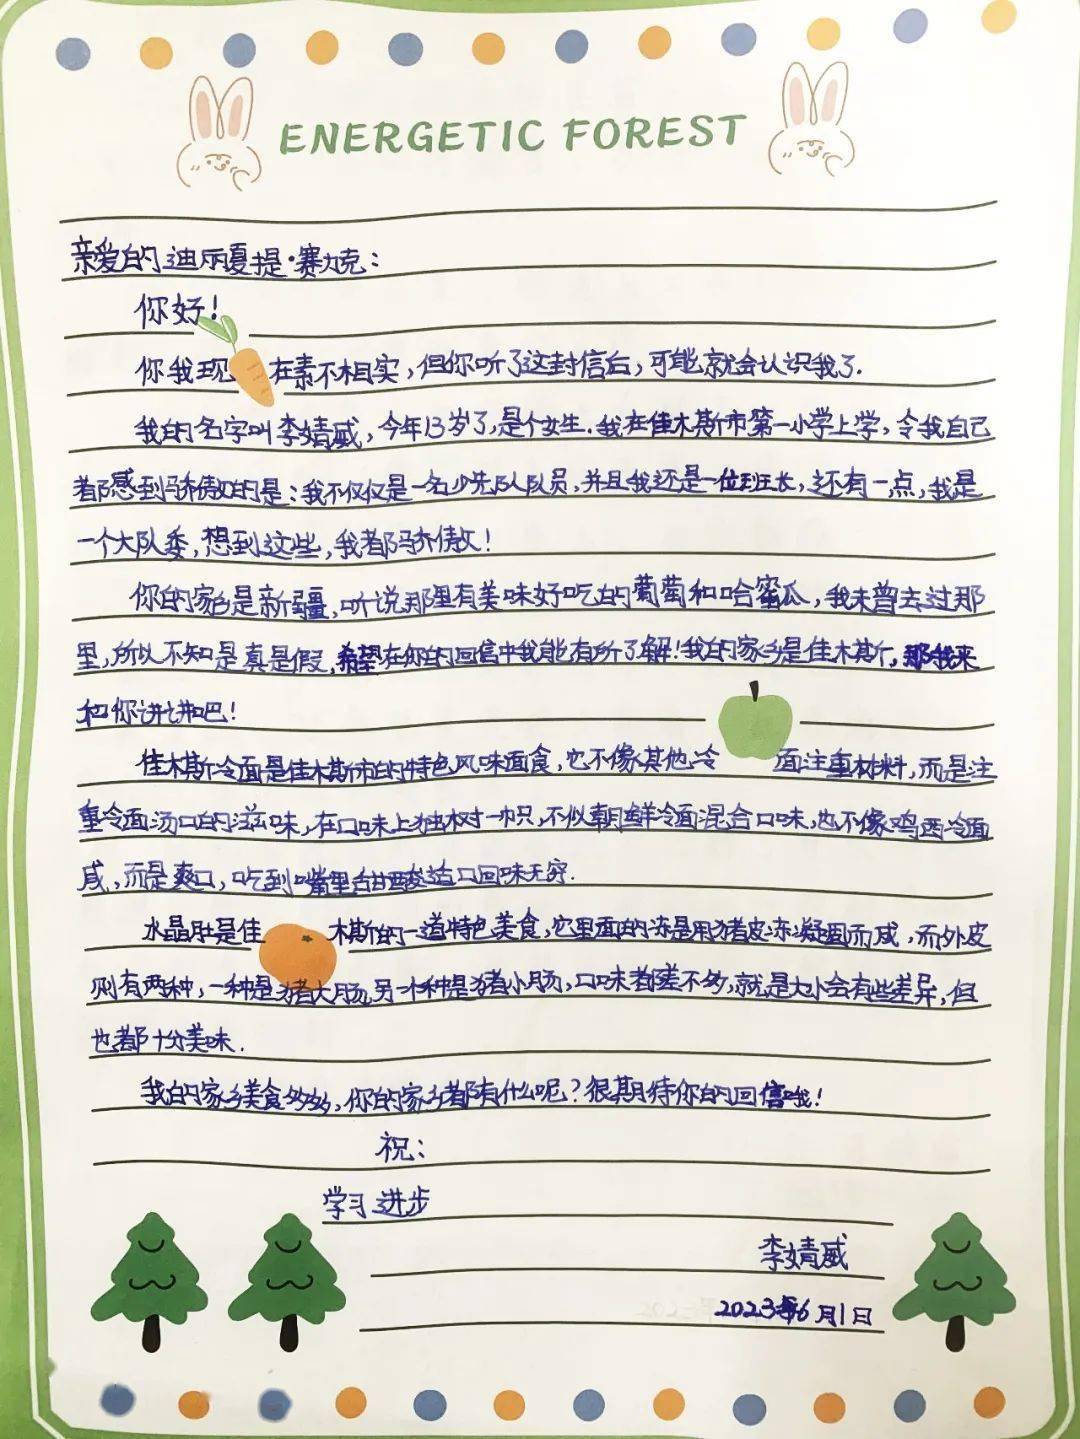 ENERGETIC FOREST
亲爱的迪丽夏提·赛力克：
你好！
你我现在素不相实，但你听了这封信后，可能就会认识我了.
我的名字叫李婧威，今年13岁了，是个女生.我在佳木斯市第一小学上学，令我自己
都感到骄傲的是：我不仅仅是一名少先队队员，并且我还是一位班长，还有一点，我是
一个大队委，想到这些，我都骄傲！
你的家乡是新疆，听说那里有美味好吃的葡萄和哈蜜瓜，我未曾去过那
里，所以不知是真是假，希望在你的回信中我能有所了解！我的家乡是佳木斯，那我来
和你讲讲吧！
佳木斯冷面是佳木斯市的特色风味面食，它不像其他冷面注重材料，而是注
重冷面汤口的滋味，在口味上独树一帜，不似朝鲜冷面混合口味，也不像鸡西冷面
咸，而是爽口，吃到嘴里甜酸适口回味无穷.
水晶肚是佳木斯的一道特色美食，它里面的冻是用猪皮冻凝固而成，而外皮
则有两种，一种是猪大肠，另一个种是猪小肠，口味都差不多，就是大小会有些差异，但
也都十分美味.
我的家乡美食多多，你的家乡都有什么呢？很期待你的回信哦！
祝：
学习进步
李婧威
2023年6月1日